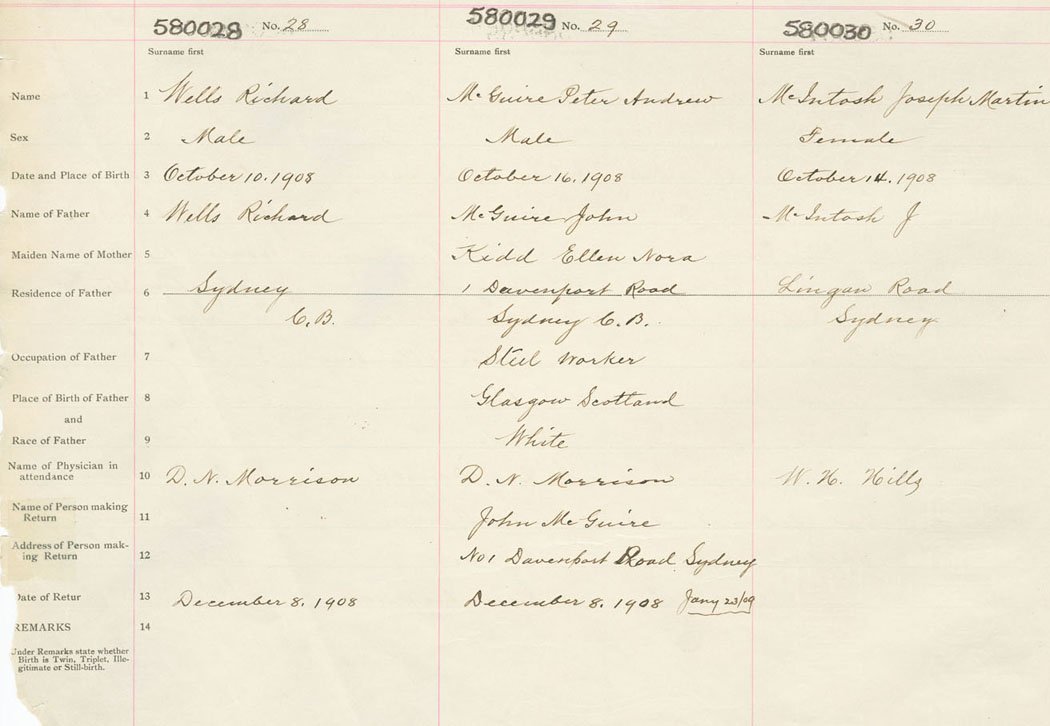 580028 No. 28 580029 No. 29 580030 No. 30
Surname first Surname first Surname first
Name 1 Wells Richard McGuire Peter Andrew McIntosh Joseph Martin
Sex 2 Male Male Female
Date and Place of Birth 3 October 10. 1908 October 16. 1908 October 14. 1908
Name of Father 4 Wells Richard McGuire John McIntosh J
Maiden Name of Mother 5 Kidd Ellen Nora
Residence of Father 6 Sydney 1 Davenport Road Lingan Road
C.B. Sydney C.B. Sydney
Occupation of Father 7 Steel Worker
Place of Birth of Father 8 Glasgow Scotland
and
Race of Father 9 White
Name of Physician in
attendance 10 D. N. Morrison D. N. Morrison W. H. Hills
Name of Person making
Return 11 John McGuire
Address of Person mak-
ing Return 12 No 1 Davenport Road Sydney
Date of Retur 13 December 8. 1908 December 8. 1908 Jany 23/09
REMARKS 14
Under Remarks state whether
Birth is Twin, Triplet, Ille-
gitimate or Still-birth.